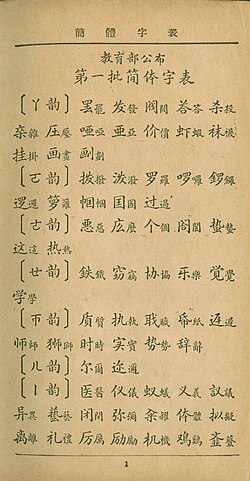 簡體字表
教育部公布
第一批简体字表
〔ㄚ韵〕罢罷 发發 阀閥 荅答 杀殺
杂雜 压壓 哑啞 亚亞 价價 虾蝦 袜襪
挂掛 画畫 劃
〔ㄛ韵〕拨撥 泼潑 罗羅 啰囉 锣鑼
逻邏 箩籮 帼幗 国國 过過
〔ㄜ韵〕恶惡 庅麼 个個 阁閣 蛰蟄
这這 热熱
〔ㄝ韵〕鉄鐵 窃竊 协協 乐樂 觉覺
学學
〔ㄭ韵〕质質 执執 职職 帋紙 迟遲
师師 狮獅 时時 实實 势勢 辞辭
〔ㄦ韵〕尔爾 迩邇
〔ㄧ韵〕医醫 仪儀 蚁蟻 义義 议議
异異 艺藝 闭閉 弥彌 籴糴 体體 拟擬
离離 礼禮 厉厲 励勵 机機 鸡鷄
1